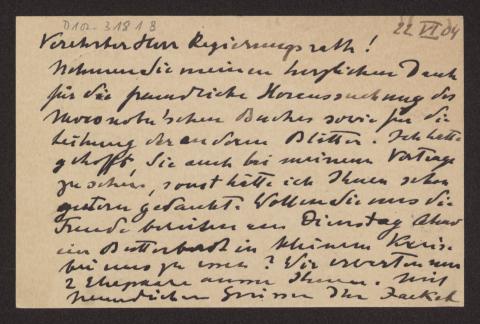 D102-3181 8
22 VI 04
Verehrter Herr Regierungsrath!
Nehmen Sie meinen herzlichen Dank
für die freundliche Heraussuchung des
Moronobu'schen Buches sowie für die
Leihung der anderen Blätter. Ich hatte
gehofft, Sie auch bei meinem Vortrage
zu sehen, sonst hätte ich Ihnen schon
gestern gedankt. Wollen Sie uns die
Freude bereiten am Dienstag Abend
ein Butterbrod in kleinem Kreise
bei uns zu essen? Wir erwarten nur
2 Ehepaare ausser Ihnen. Mit
freundlichen Grüssen Ihr Jaekel